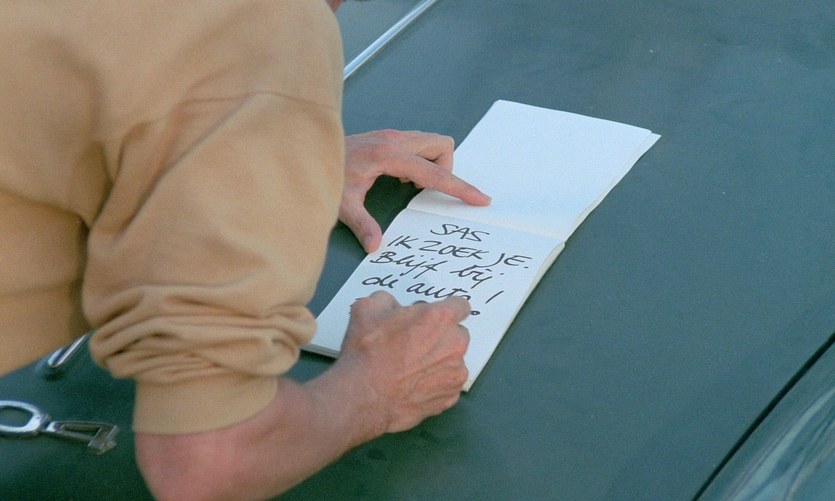 SAS
IK ZOEK JE.
Blijf bij
de auto!